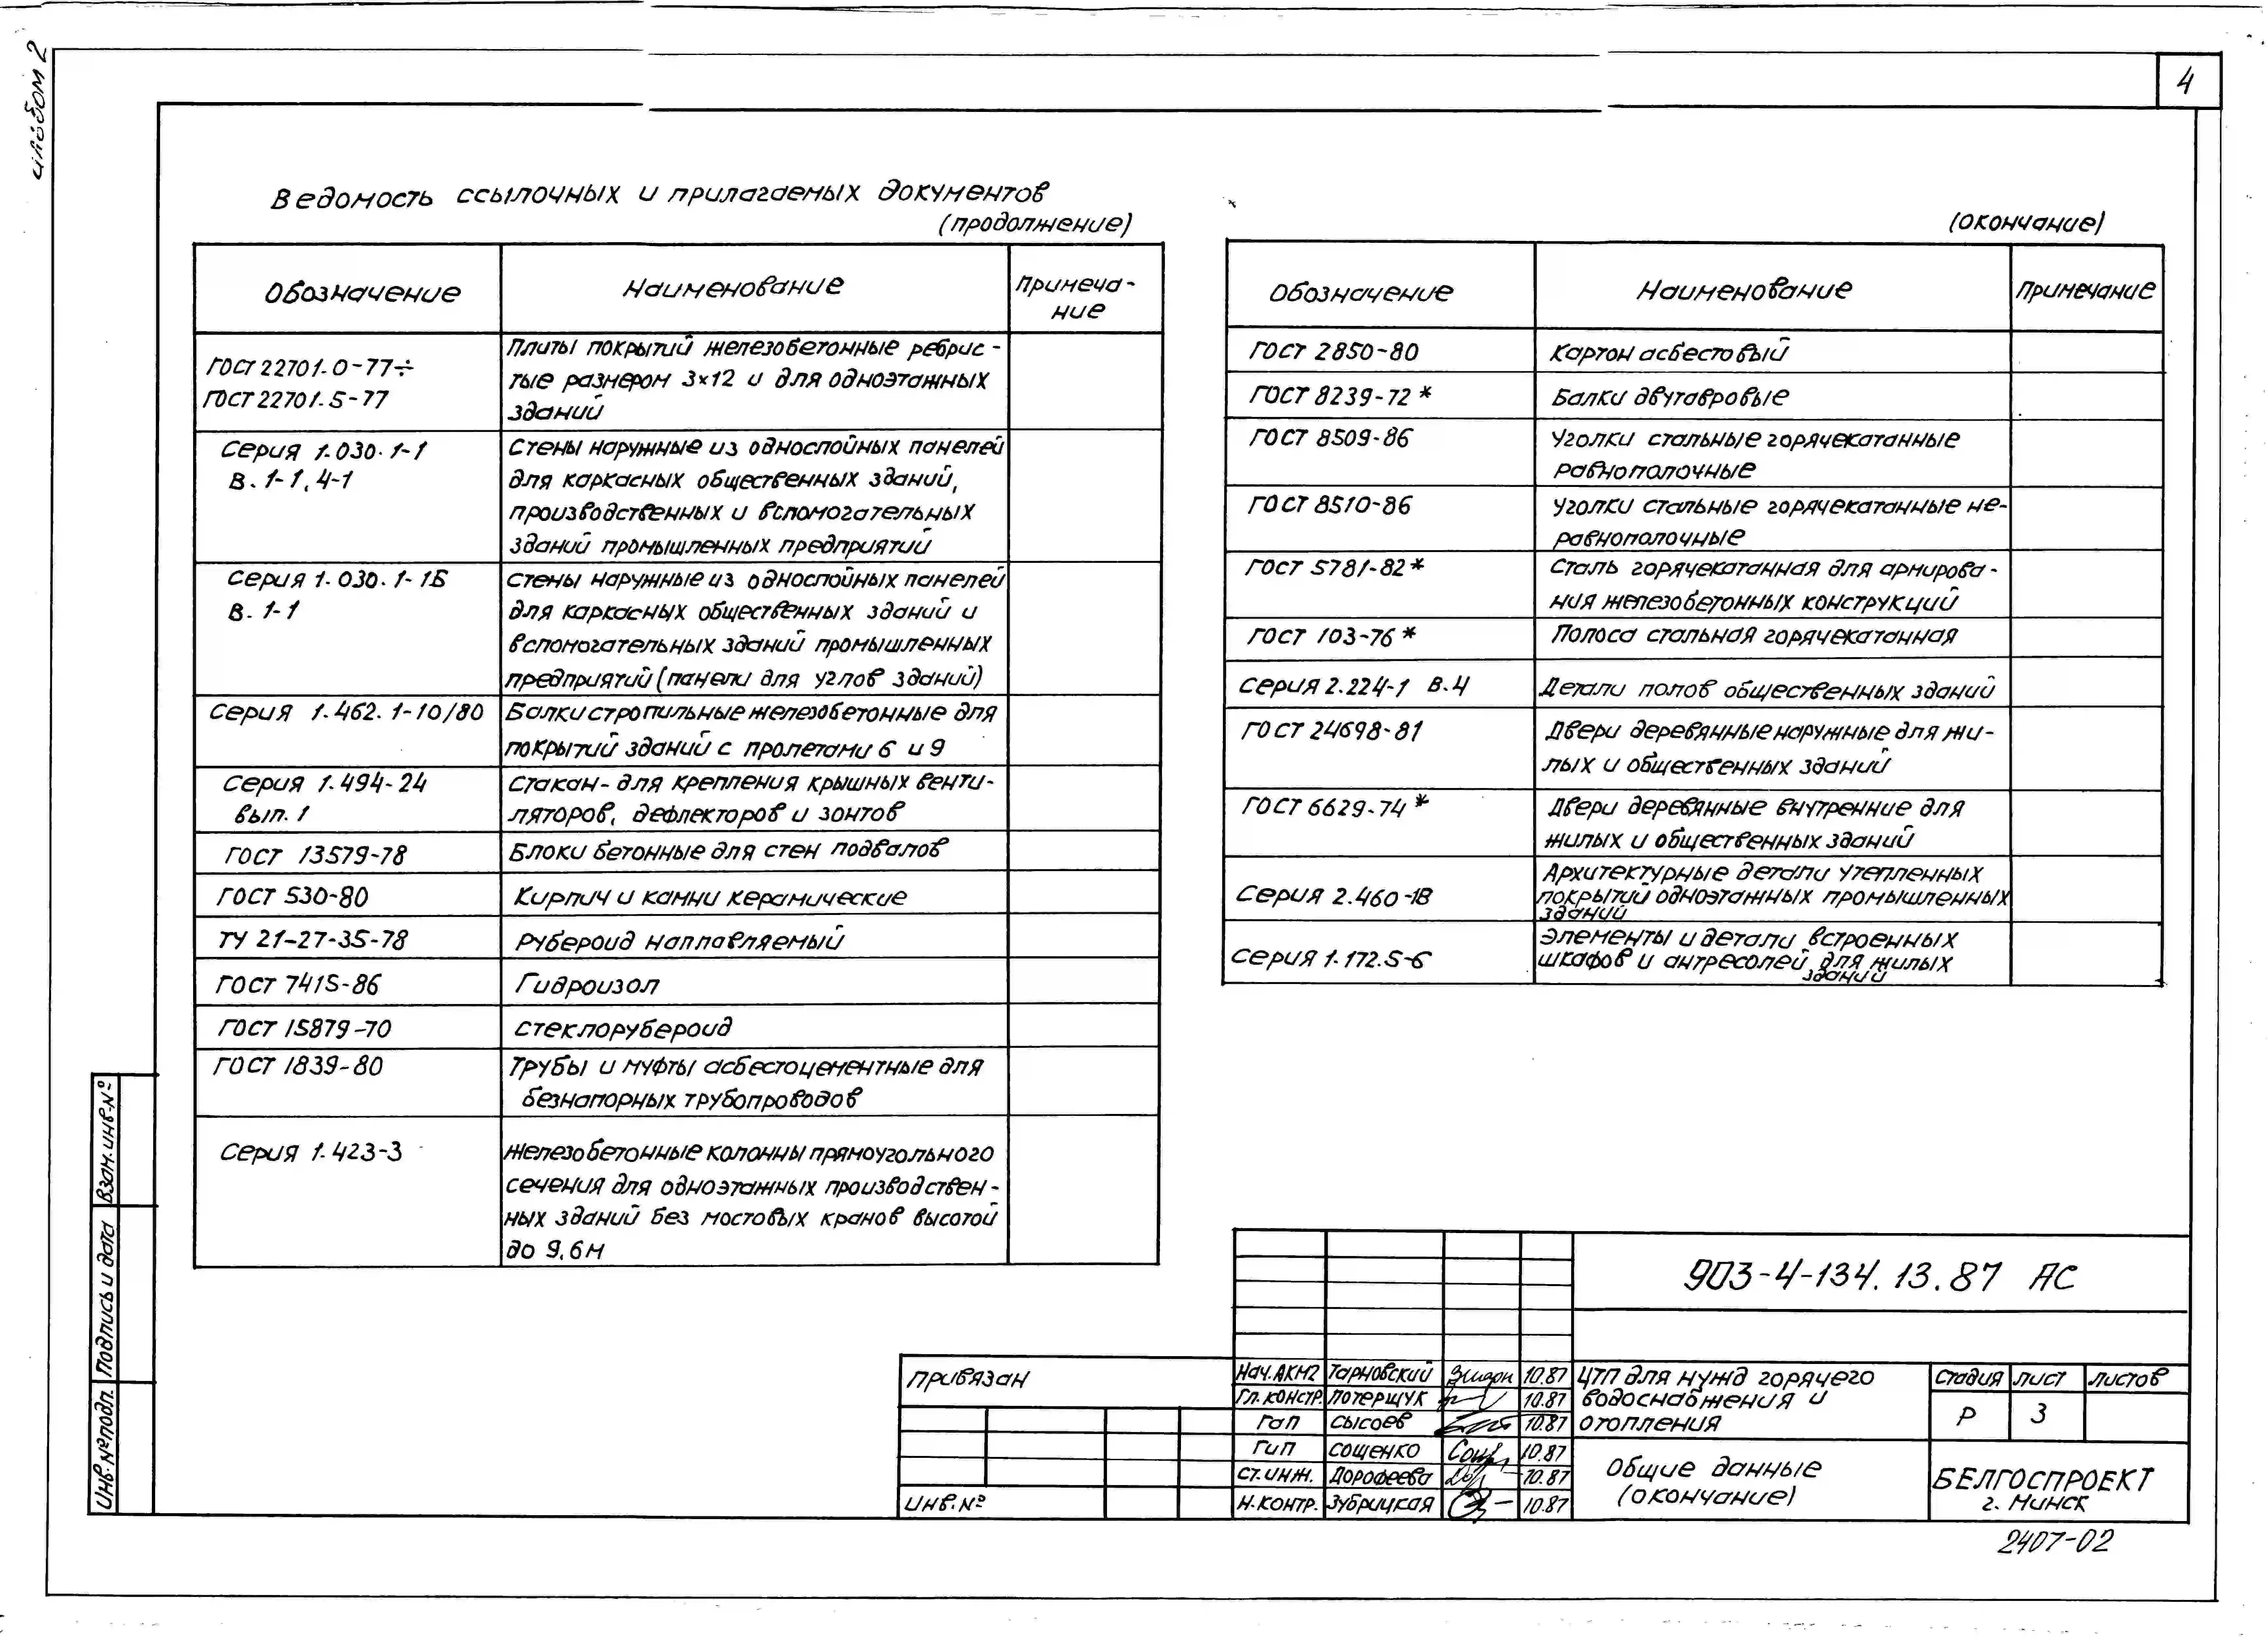 Альбом 2
4
Ведомость ссылочных и прилагаемых документов
(продолжение)
Обозначение Наименование Примеча-
ние
ГОСТ 22701.0-77÷
ГОСТ 22701.5-77
Плиты покрытий железобетонные ребрис-
тые размером 3×12 и для одноэтажных
зданий
Серия 1.030.1-1
В. 1-1, 4-1
Стены наружные из однослойных панелей
для каркасных общественных зданий,
производственных и вспомогательных
зданий промышленных предприятий
Серия 1.030.1-1Б
В. 1-1
Стены наружные из однослойных панелей
для каркасных общественных зданий и
вспомогательных зданий промышленных
предприятий (панели для углов зданий)
Серия 1.462.1-10/80
Балки стропильные железобетонные для
покрытий зданий с пролетами 6 и 9
Серия 1.494-24
вып. 1
Стакан- для крепления крышных венти-
ляторов, дефлекторов и зонтов
ГОСТ 13579-78 Блоки бетонные для стен подвалов
ГОСТ 530-80 Кирпич и камни керамические
ТУ 21-27-35-78 Рубероид наплавляемый
ГОСТ 7415-86 Гидроизол
ГОСТ 15879-70 Стеклорубероид
ГОСТ 1839-80 Трубы и муфты асбестоцементные для
безнапорных трубопроводов
Серия 1.423-3 Железобетонные колонны прямоугольного
сечения для одноэтажных производствен-
ных зданий без мостовых кранов высотой
до 9,6м
(окончание)
Обозначение Наименование Примечание
ГОСТ 2850-80 Картон асбестовый
ГОСТ 8239-72* Балки двутавровые
ГОСТ 8509-86 Уголки стальные горячекатанные
равнополочные
ГОСТ 8510-86 Уголки стальные горячекатанные не-
равнополочные
ГОСТ 5781-82* Сталь горячекатанная для армирова-
ния железобетонных конструкций
ГОСТ 103-76* Полоса стальная горячекатанная
Серия 2.224-1 в.4 Детали полов общественных зданий
ГОСТ 24698-81 Двери деревянные наружные для жи-
лых и общественных зданий
ГОСТ 6629-74* Двери деревянные внутренние для
жилых и общественных зданий
Серия 2.460-18
Архитектурные детали утепленных
покрытий одноэтажных промышленных
зданий
Серия 1.172.5-6
Элементы и детали встроенных
шкафов и антресолей для жилых
зданий
Взам. инв. №
Подпись и дата
Инв. № подл.
Привязан
Инв. №
903-4-134.13.87 АС
Нач. АКМ2 Тарновский 10.87
Гл. констр. Потерщук 10.87
ГАП Сысоев 10.87
ГИП Сощенко 10.87
Ст. инж. Дорофеева 10.87
Н. контр. Зубрицкая 10.87
ЦТП для нужд горячего
водоснабжения и
отопления
Стадия Лист Листов
Р 3
Общие данные
(окончание)
БЕЛГОСПРОЕКТ
г. Минск
2407-02